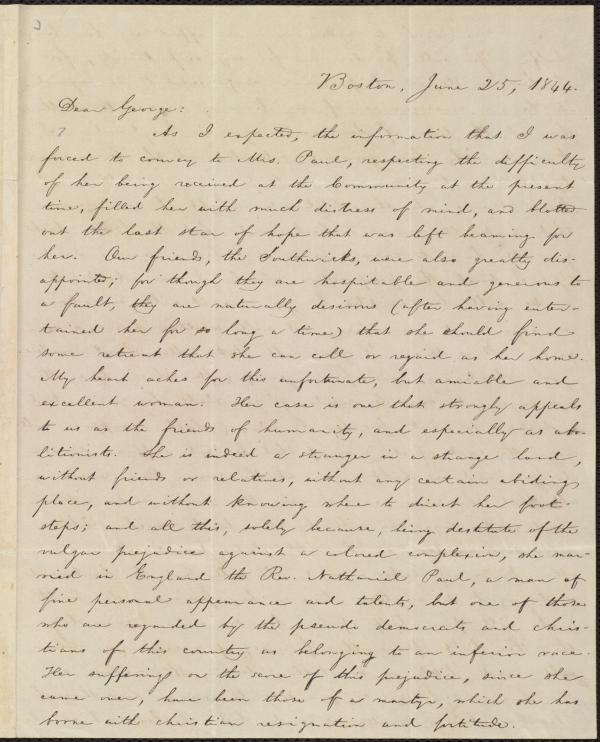 Boston, June 25, 1844.
Dear George:
As I expected, the information that I was
forced to convey to Mrs. Paul, respecting the difficulty
of her being received at the Community at the present
time, filled her with much distress of mind, and blotted
out the last star of hope that was left beaming for
her. Our friends, the Southwicks, were also greatly dis-
appointed; for though they are hospitable and generous to
a fault, they are naturally desirous (after having enter-
tained her for so long a time) that she should find
some retreat that she can call or regard as her home.
My heart aches for this unfortunate, but amiable and
excellent woman. Her case is one that strongly appeals
to us as the friends of humanity, and especially as abo-
litionists. She is indeed a stranger in a strange land,
without friends or relatives, without any certain abiding
place, and without knowing where to direct her foot-
steps; and all this, solely because, being destitute of the
vulgar prejudice against a colored complexion, she mar-
ried in England the Rev. Nathaniel Paul, a man of
fine personal appearance and talents, but one of those
who are regarded by the pseudo democrats and chris-
tians of this country as belonging to an inferior race.
Her sufferings on the score of this prejudice, since she
came over, have been those of a martyr, which she has
borne with christian resignation and fortitude.